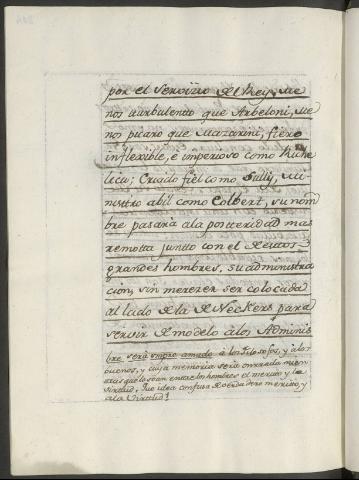 por el Servizio del Rey, me
nos turbulento que Arbeloni, me
nos picaro que Mazarini, fiero
inflexible, e imperioso como Riche
lieu; Criado fiel como Sully, mi
nistro abil como Colbert, su nom
bre pasarà a la posteridad mas
remotta juntto con el de estos
grandes hombres, su administra
cion, sin merezer ser colocada
al lado de la de Neckers para
servir de modelo à los Adminis
bre serà smpre amado à los filosofos, y à los
buenos, y cuya memoria serà onrrada mien
tras que lo sean entre los hombres el merito y la
virttud, idea confusa de merito, y
a la Virttud!